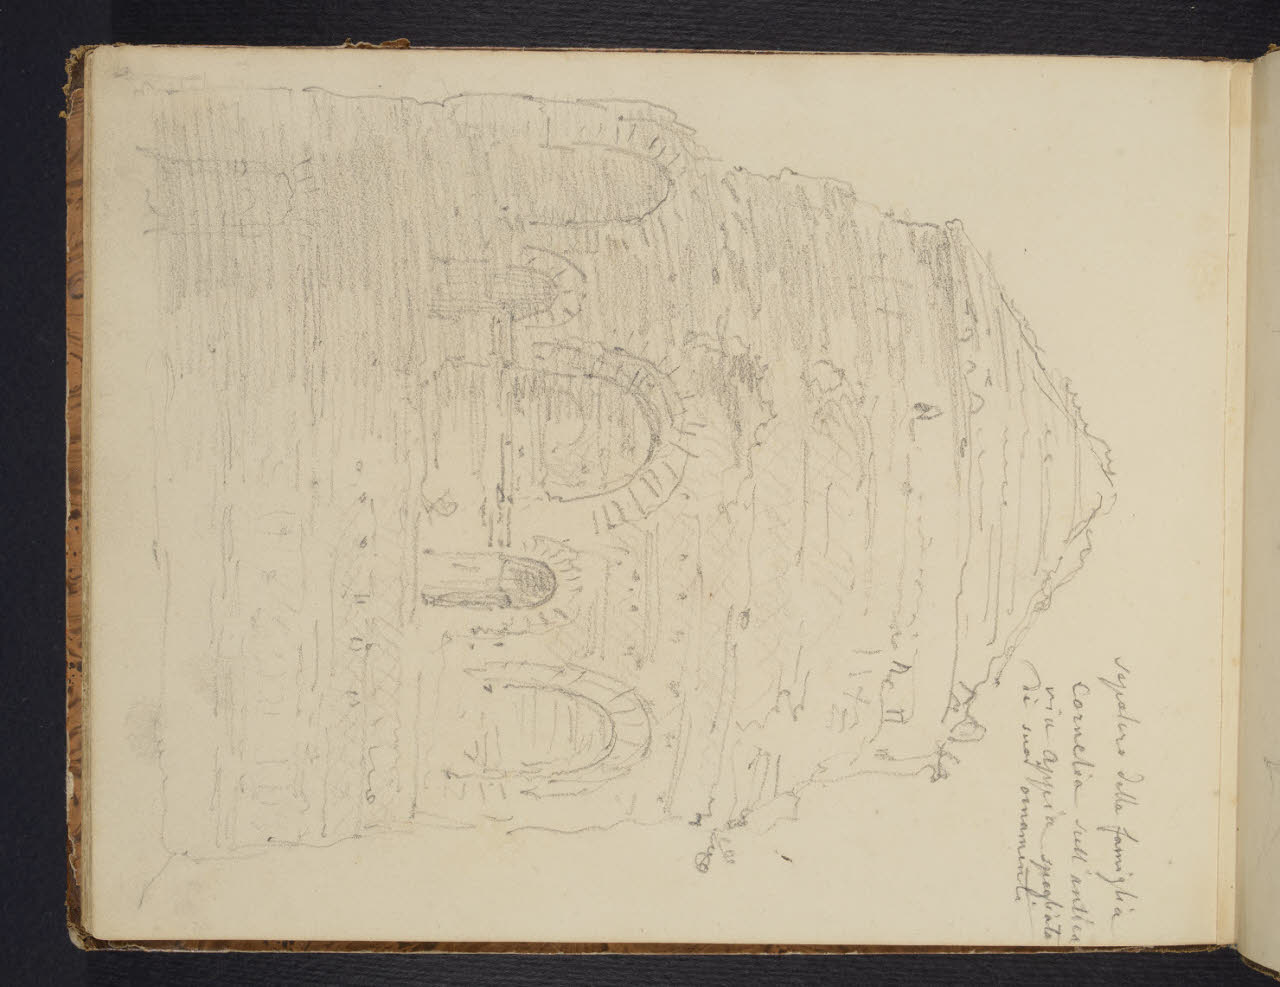 sepolcro della famiglia
Cornelia sull'antica
via Appia spogliato
di suoi ornamenti